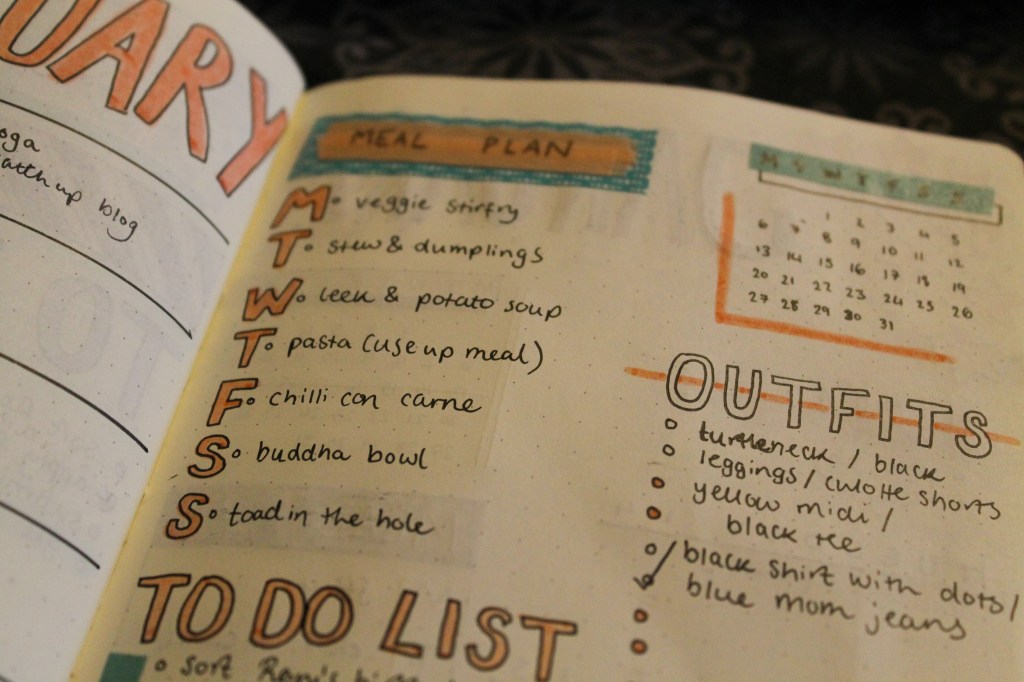 UARY
oga
catch up blog
MEAL PLAN
M veggie stirfry
T stew & dumplings
W leek & potato soup
T pasta (use up meal)
F chilli con carne
S buddha bowl
S toad in the hole
TO DO LIST
sort
M T W T F S S
1 2 3 4 5
6 7 8 9 10 11 12
13 14 15 16 17 18 19
20 21 22 23 24 25 26
27 28 29 30 31
OUTFITS
turtleneck / black
leggings / culotte shorts
yellow midi /
black tee
black shirt with dots /
blue mom jeans